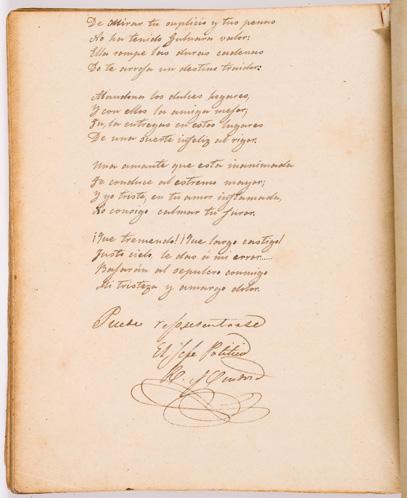 De mirar tu suplicio y tus penas
No ha tenido Gulnara valor:
Ella rompe las duras cadenas
Do te arroja un destino traidor:
Abandona los dulces hogares,
Y con ellos la amiga mejor,
Tu, la entregas en estos lugares
De una suerte infeliz al rigor.
Una amante que esta inanimada
Te conduce al estremo mayor;
Y yo triste, en tu amor inflamada,
No consigo calmar tu furor.
¡Que tremendo! ¡Que largo castigo!
Justo cielo, le das á mi error....
Bajarán al sepulcro conmigo
Mi tristeza y amargo dolor.
Puede representarse
El Jefe Politico